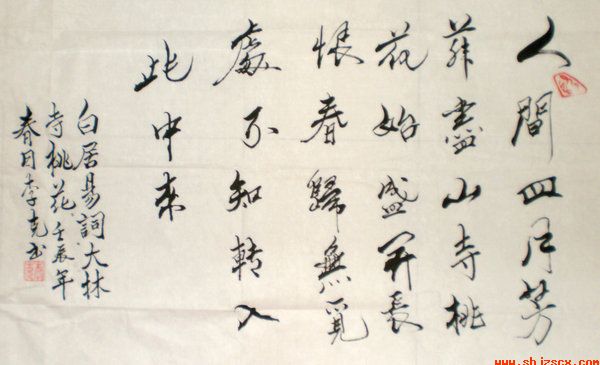 人間四月芳
菲盡山寺桃
花始盛開長
恨春歸無覓
處不知轉入
此中來
白居易詞大林
寺桃花壬辰年
春日李克書